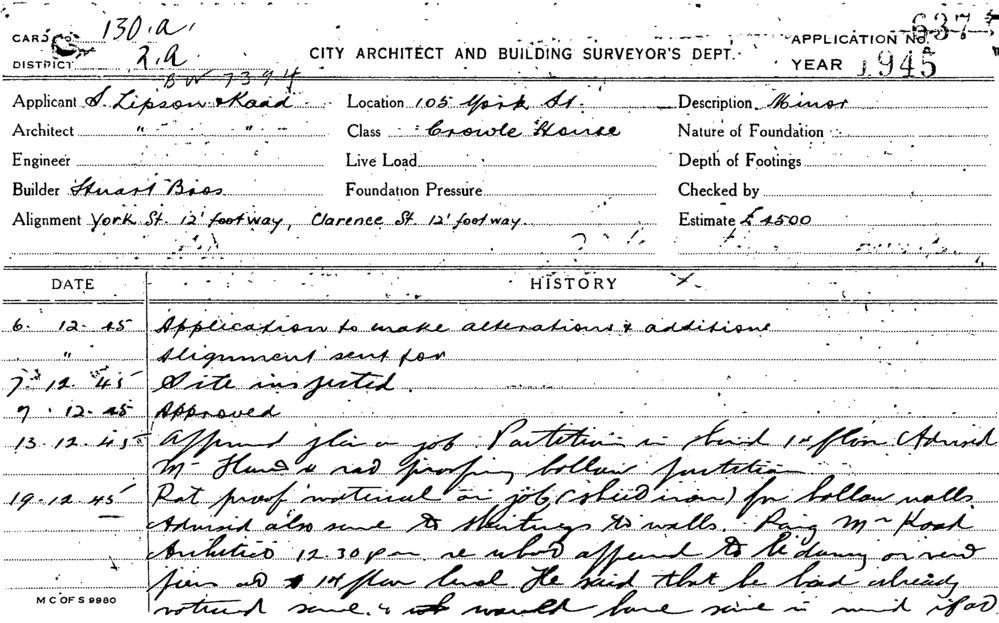 CARD No. 130.a.
637
APPLICATION No.
DISTRICT 2.a
CITY ARCHITECT AND BUILDING SURVEYOR'S DEPT.
YEAR 1945
BW 7394
Applicant S. Lipson & Kaad Location 105 York St. Description Minor
Architect " " Class Crowle House Nature of Foundation
Engineer Live Load Depth of Footings
Builder Stuart Bros Foundation Pressure Checked by
Alignment York St. 12' footway, Clarence St. 12' footway. Estimate £ 4500
DATE HISTORY
6. 12. 45 Application to make alterations & additions
" Alignment sent for
7. 12. 45 Site inspected.
7. 12. 45 Approved
13. 12. 45 Approved plan on job Partitions in 1st floor Advised
Mr proofing hollow partitions
19. 12. 45 Rat proof material on job (sheet iron) for hollow walls
Advised also same to skirtings to walls. Ring Mr Kaad
Architect 12.30 p.m. re what appeared to be on new
piers at 1st floor level He said that he had already
noticed same & would have same in mind
M C OF S 9980